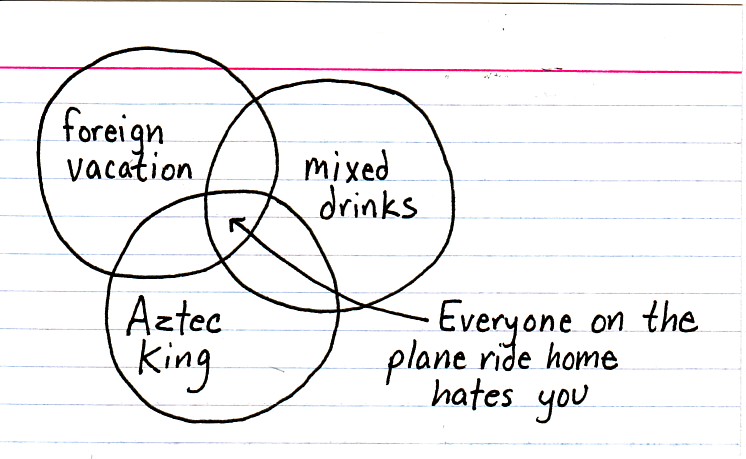 foreign
vacation
mixed
drinks
Aztec
King
Everyone on the
plane ride home
hates you